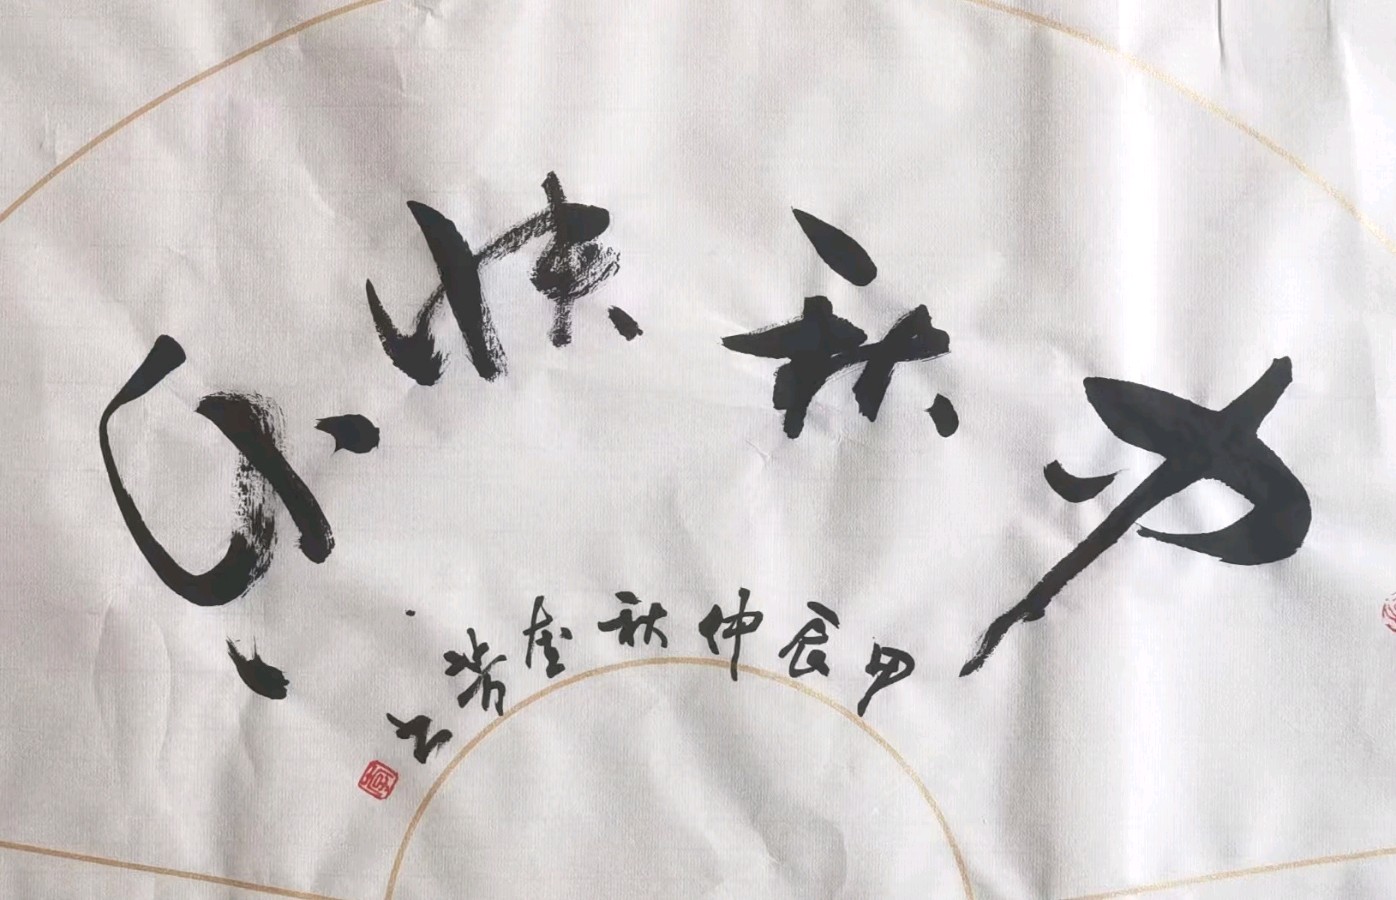 中秋快乐
甲辰仲秋书